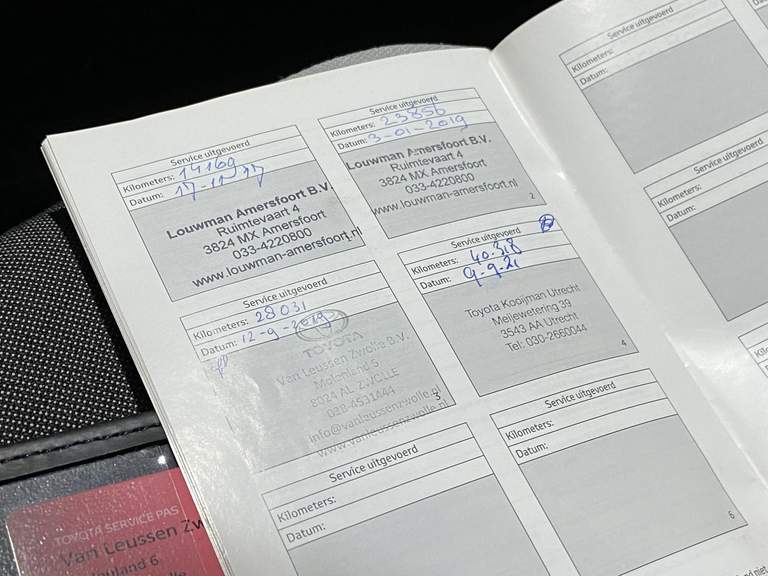 Service uitgevoerd
Kilometers: 14169
Datum: 17-11-17
Louwman Amersfoort B.V.
Ruimtevaart 4
3824 MX Amersfoort
033-4220800
www.louwman-amersfoort.nl
Service uitgevoerd
Kilometers: 23856
Datum: 3-01-2019
Louwman Amersfoort B.V.
Ruimtevaart 4
3824 MX Amersfoort
033-4220800
www.louwman-amersfoort.nl
2
Service uitgevoerd
Kilometers: 28031
Datum: 12-9-2019
TOYOTA
Van Leussen Zwolle B.V.
8024 AL ZWOLLE
038-4531444
info@vanleussenzwolle.nl
www.vanleussenzwolle.nl
3
Service uitgevoerd
Kilometers: 40.318
Datum: 9-9-21
Toyota Kooijman Utrecht
Meijewetering 39
3543 AA Utrecht
Tel: 030-2660044
4
Service uitgevoerd
Kilometers:
Datum:
Service uitgevoerd
Kilometers:
Datum:
6
Service uitgevoerd
Kilometers:
Datum:
Service uitgevoerd
Kilometers:
Datum:
Kilometers:
Datum:
TOYOTA SERVICE PAS
Van Leussen Zw